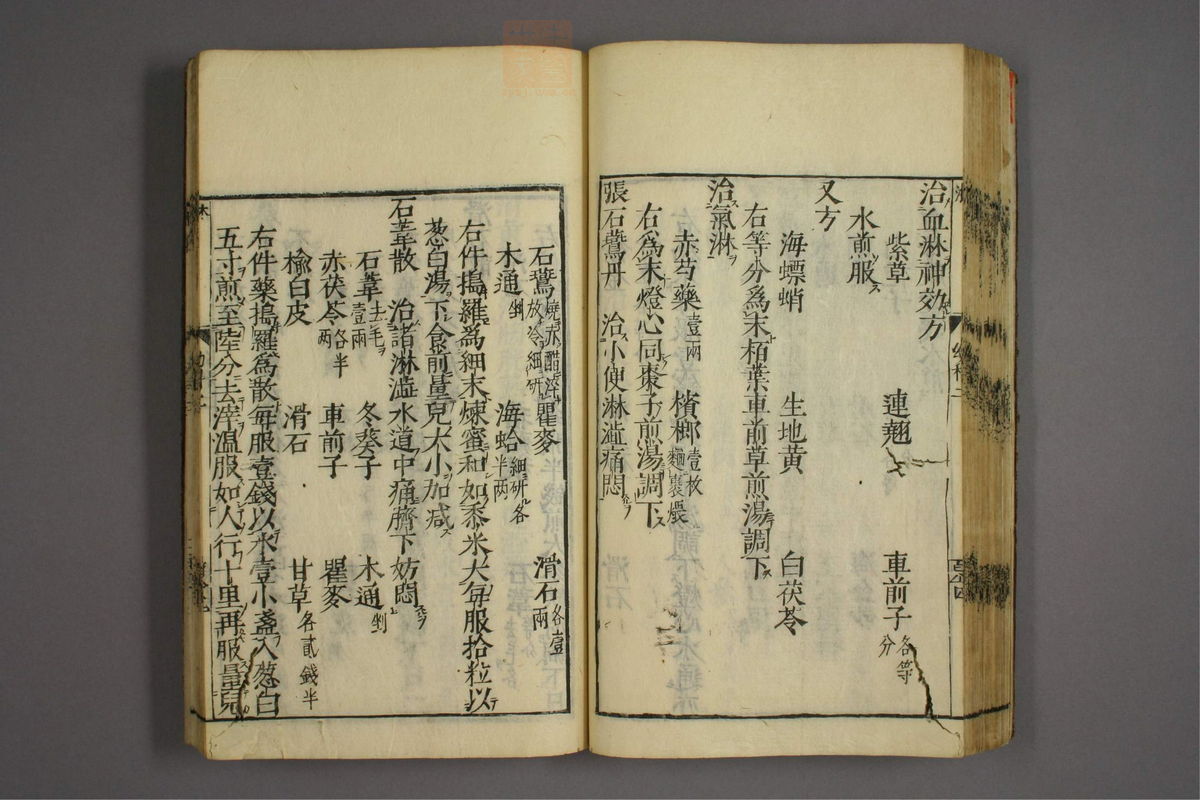 治血淋神效方
紫草　連翹　車前子各等分
水煎服
又方
海螵蛸　生地黄　白茯苓
右等分為末栢葉車前草煎湯調下
治氣淋
赤芍藥壹兩　檳榔壹枚麵裹煨
右為末燈心同棗子煎湯調下
張石鷰丹　治小便淋澁痛悶
石鷰燒赤醋淬放冷細研　瞿麥　滑石各壹兩
木通剉　海蛤細研各半兩
右件搗羅為細末煉蜜和如黍米大每服拾粒以
葱白湯下食前量兒大小加减
石葦散　治諸淋澁水道中痛臍下妨悶
石葦去毛壹兩　冬葵子　木通剉
赤茯苓各半兩　車前子　瞿麥
榆白皮　滑石　甘草各貳錢半
右件藥搗羅為散每服壹錢以水壹小盞入葱白
五寸煎至陸分去滓溫服如人行十里再服量兒